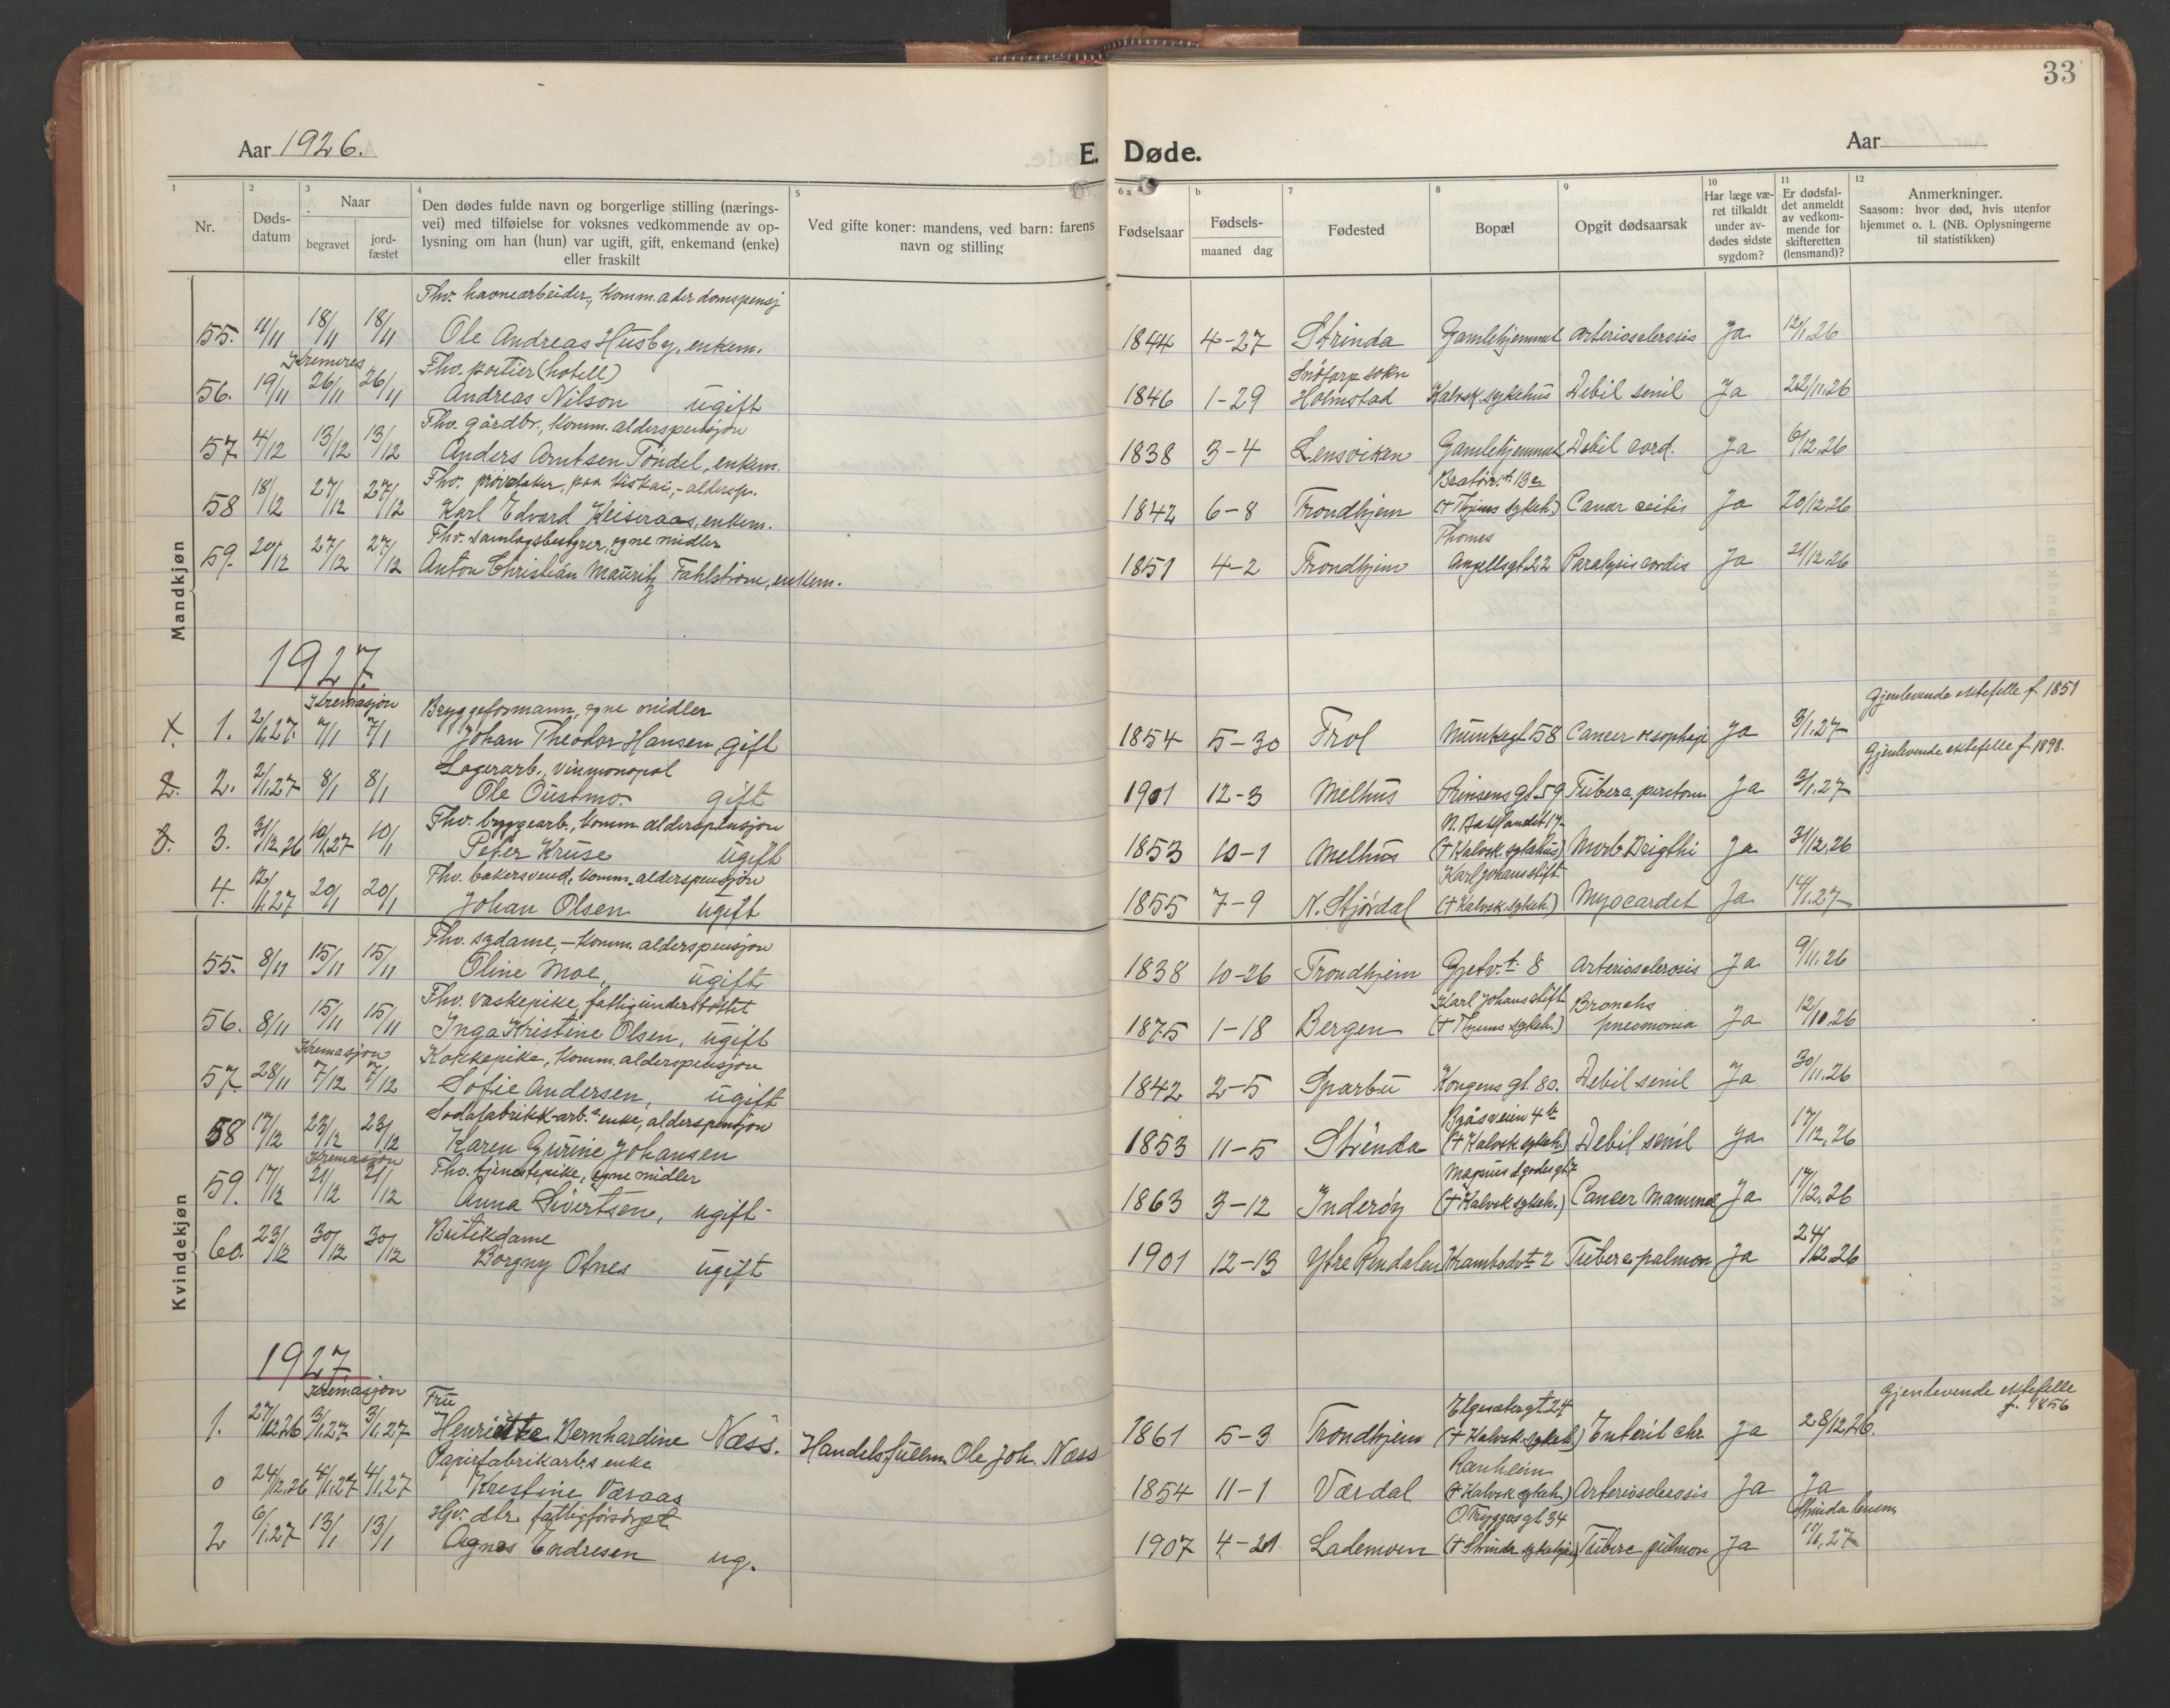 33
Aar 1926.
E. Døde.
Aar
1
2
3
4
5
6 a
b
7
8
9
10
11
12
Nr.
Døds-
datum
Naar
begravet
jord-
fæstet
Den dødes fulde navn og borgerlige stilling (nærings-
vei) med tilføielse for voksnes vedkommende av op-
lysning om han (hun) var ugift, gift, enkemand (enke)
eller fraskilt
Ved gifte koner: mandens, ved barn: farens
navn og stilling
Fødselsaar
Fødsels-
maaned dag
Fødested
Bopæl
Opgit dødsaarsak
Har læge væ-
ret tilkaldt
under av-
dødes sidste
sygdom?
Er dødsfal-
det anmeldt
av vedkom-
mende for
skifteretten
(lensmand)?
Anmerkninger.
Saasom: hvor død, hvis utenfor
hjemmet o. l. (NB. Oplysningerne
til statistikken)
Mandkjøn
Fhv. havnearbeider, komm. alderdomspensj
55. 11/11 18/11 18/11 Ole Andreas Husby, enkem. 1844 4-27 Strinda Gamlehjemmet Arteriosclerosis Ja 12/11.26
Kremeres Fhv. portier (hotell) Snöfarp sokn
56. 19/11 26/11 26/11 Andreas Nilson ugift 1846 1-29 Holmstad Kalvsk. sykehus Debil senil Ja 22/11.26
Fhv. gårdbr., komm. alderspensjon
57 4/12 13/12 13/12 Anders Arntsen Töndel, enkem. 1838 3-4 Lensviken Gamlehjemmet Debil cord. Ja 6/12.26
Fhv. prövetaker, paa - aldersp.
58 18/12 27/12 27/12 Karl Edvard Keiseraas, enkem. 1842 6-8 Trondhjem (+ Thjems sykeh.) Ja 20/12.26
Fhv. samlagsbestyrer, egne midler Thomas
59. 20/12 27/12 27/12 Anton Christian Mauritz Fahlström, enkem. 1851 4-2 Trondhjem Angellsgt 22 Paralysis cordis Ja 21/12.26
1927
Kremasjon Bryggeformann, egne midler Gjenlevende ektefelle f. 1851
1. 1. 2/1.27 7/1 7/1 Johan Theodor Hansen, gift 1854 5-30 Frol Munkegt 58 Cancer oesophagi Ja 3/1.27
Lagerarb., vinmonopol Gjenlevende ektefelle f. 1898.
2. 2. 2/1.27 8/1 8/1 Ole Oustmo. gift 1901 12-3 Melhus Prinsens gt. 59 Tuberc. periton Ja 3/1.27
Fhv. bryggearb., komm. alderspensjon N. Bakklandet 17
3. 3. 31/12.26 10/1.27 10/1 Peter Kruse ugift 1853 10-1 Melhus (+ Kalvsk. sykehus) Morb Brigthi Ja 31/12.26
Fhv. bakersvend, komm. alderspensjon Karl Johans stift
4. 12/1.27 20/1 20/1 Johan Olsen ugift 1855 7-9 N. Stjördal (+ Kalvsk. sykeh.) Myocardet Ja 14/1.27
Kvindekjøn
Fhv. sydame, - komm. alderspensjon
55. 8/11 15/11 15/11 Oline Moe, ugift 1838 10-26 Trondhjem Gjetv.t. 8 Arteriosclerosis Ja 9/11.26
Fhv. vaskepike, fattigunderstöttet Karl Johans stift Broncho
56. 8/11 15/11 15/11 Inga Kristine Olsen, ugift 1875 1-18 Bergen (+ Thjems sykeh.) pneomonia Ja
Kremasjon Kokkepike, komm. alderspensjon
57. 28/11 7/12 7/12 Sofie Andersen, ugift 1842 2-5 Sparbu Kongens gt. 80. Debil senil Ja 30/11.26
Sodafabrikk-arb.s enke, alderspensjon Byåsveien 4 b
58 17/12 23/12 23/12 Karen Gurine Johansen 1853 11-5 Strinda (+ Kalvsk sykeh.) Debil senil Ja 17/12.26
Kremasjon Fhv. tjenestepike, egne midler Magnus d. godes gt 7
59. 17/12 21/12 21/12 Anna Sivertsen, ugift - 1863 3-12 Inderöy (+ Kalvsk sykeh.) Cancer Mamma Ja 17/12.26
Butikdame
60. 23/12 30/12 30/12 Borgny Otnes ugift 1901 12-13 Ytre Rendalen Krambodvt 2 Tuberc palmon Ja 24/12.26
1927
Kremasjon Fru Elgesætergt. 24 Gjenlevende ektefelle f. 1856
1. 27/12.26 3/1.27 3/1.27 Henriette Bernhardine Næss. Handelsfullm. Ole Joh. Næss 1861 5-3 Trondhjem (+ Kalvsk. sykeh.) Enterit chr. Ja 28/12.26.
Papirfabrikarb.s enke Ranheim
0 24/12.26 4/1.27 4/1.27 Krestine Væraas 1854 11-1 Værdal (+ Kalvsk sykeh.) Arteriosclerosis Ja Ja
Hjv. dtr. fattigforsörget O. Tryggvas gt. 34 Strinda lensm.
2 6/1.27 13/1 13/1 Agnes Endresen ug. 1907 4-21 Lademoen (+ Strinda sykehjem) Tuberc pulmon Ja